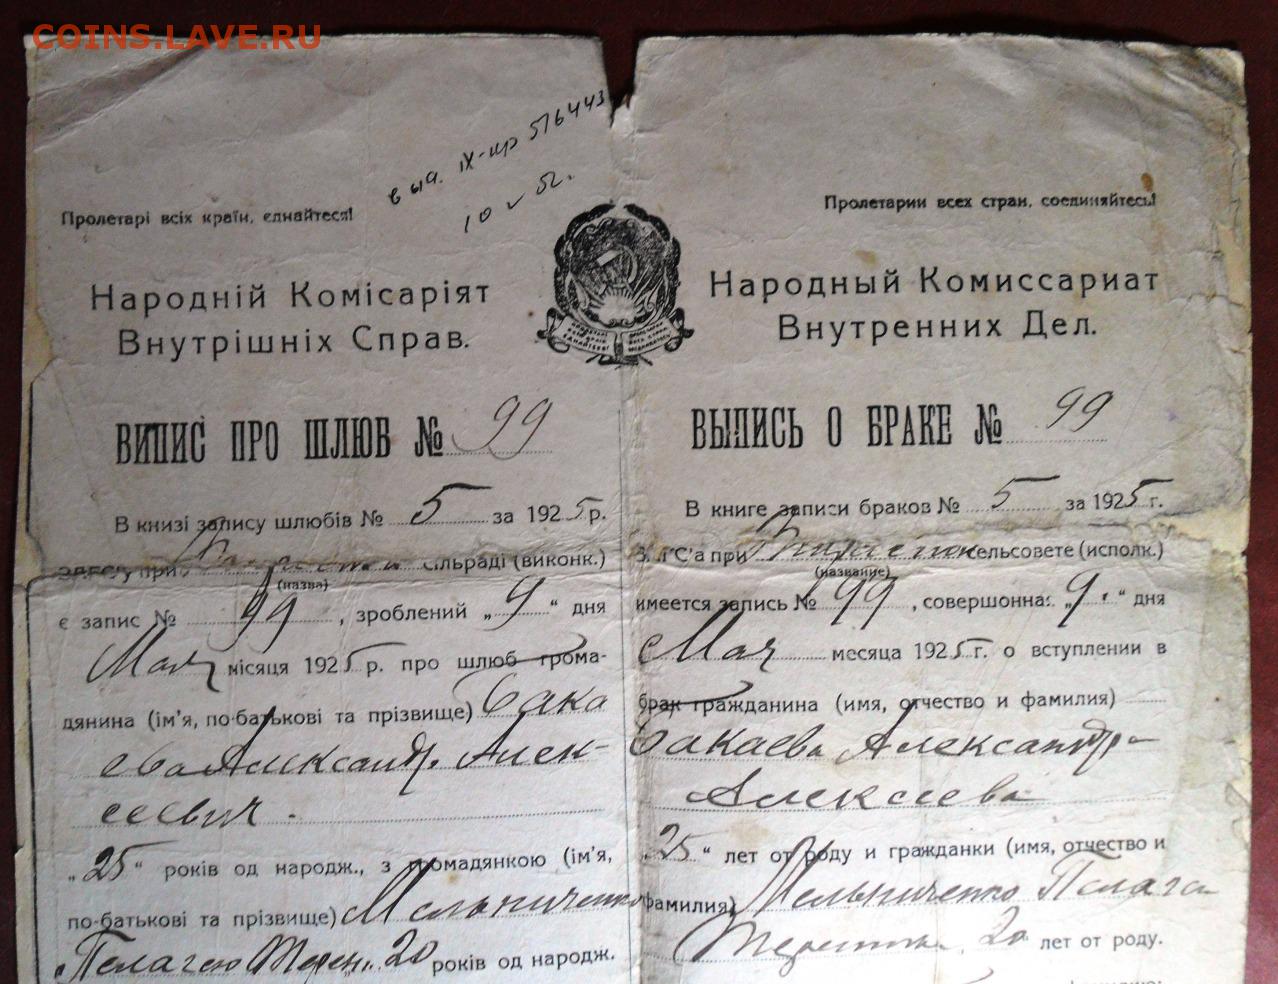 COINS.LAVE.RU
выд. IX-шр 516443
10 V 52.
Пролетарі всіх країн, єднайтеся!
Народній Комісаріят
Внутрішніх Справ.
ВИПИС ПРО ШЛЮБ № 99
В книзі запису шлюбів № 5 за 1925 р.
при сільраді (виконк.)
(назва)
є запис № 99, зроблений „9“ дня
Мая місяця 1925 р. про шлюб грома-
дянина (ім'я, по-батькові та прізвище) Бака
ева Александр. Алек-
сеевич.
„25“ років од народж., з громадянкою (ім'я,
по-батькові та прізвище) Мельниченко
Пелагею 20 років од народж.
Пролетарии всех стран, соединяйтесь!
Народный Комиссариат
Внутренних Дел.
ВЫПИСЬ О БРАКЕ № 99
В книге записи браков № 5 за 1925 г.
ЗАГС'а при сельсовете (исполк.)
(название)
имеется запись № 99, совершонная „9.“ дня
Мая месяца 1925 г. о вступлении в
брак гражданина (имя, отчество и фамилия)
Бакаева Александра
Алексеева
„25“ лет от роду и гражданки (имя, отчество и
фамилия) Мельниченко Пелагея
20 лет от роду.